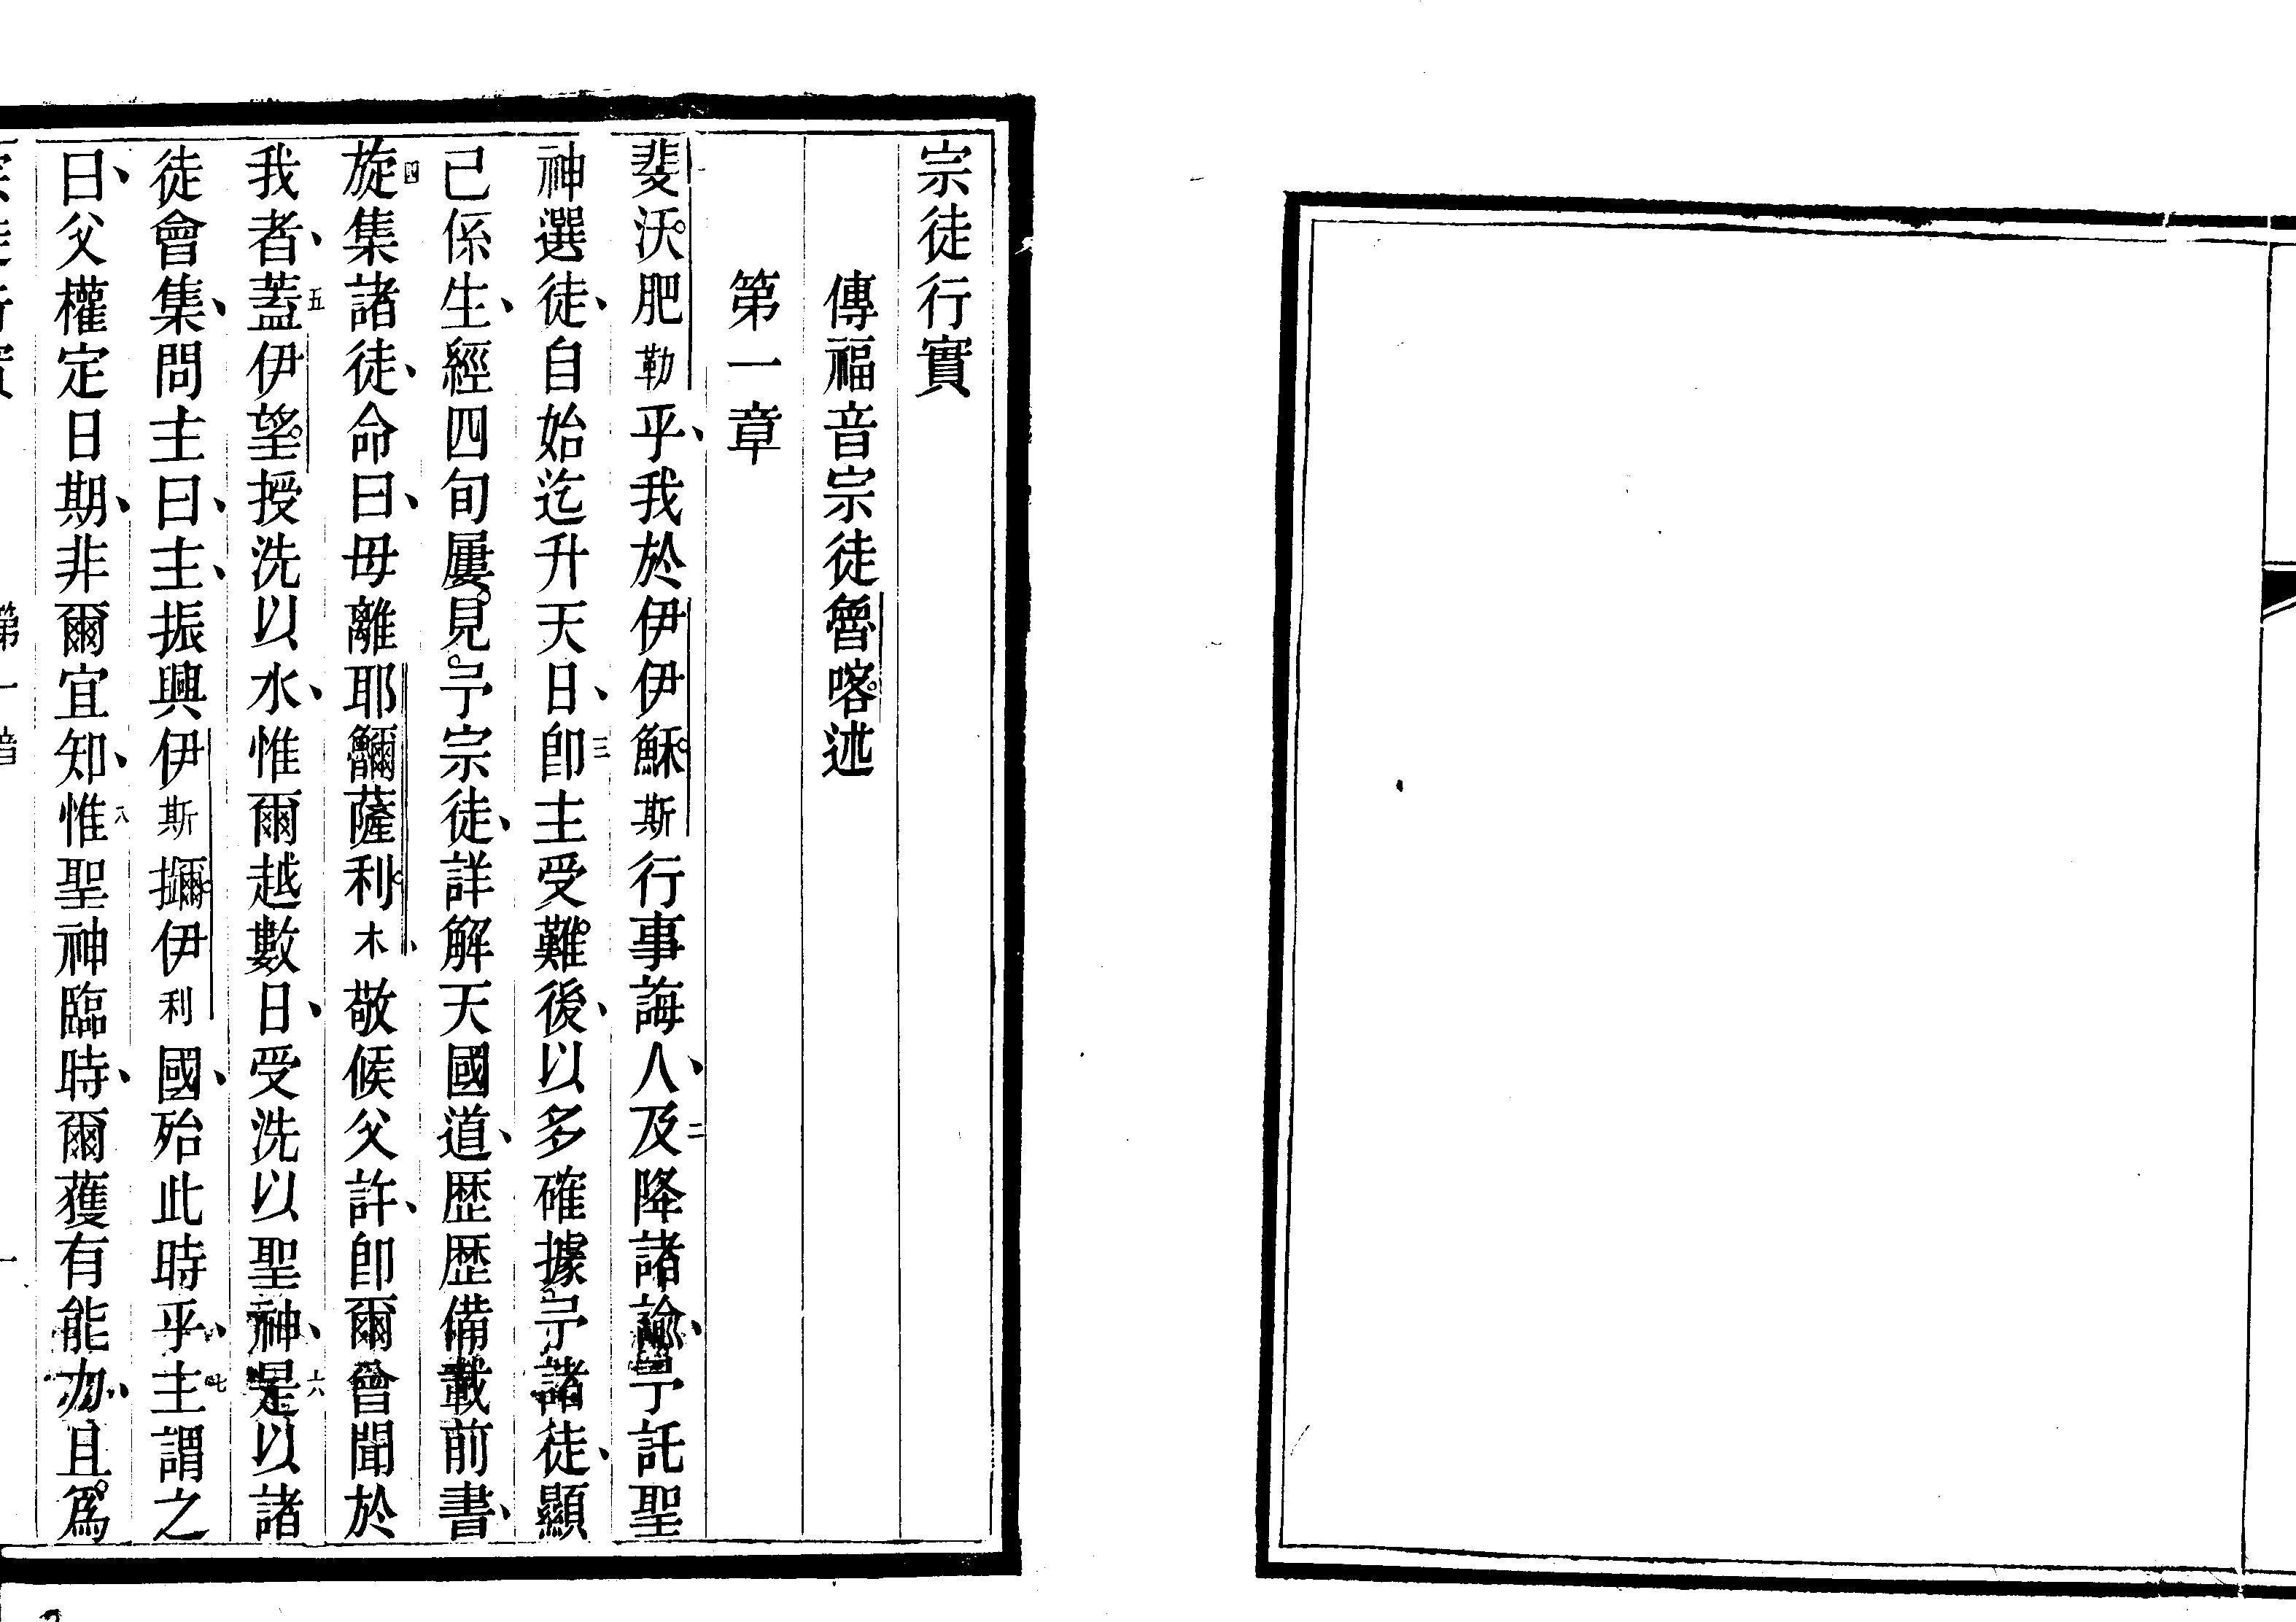 宗徒行實
傳福音宗徒魯喀述
第一章
斐沃肥勒乎、我於伊伊穌斯行事誨人、二及降諸諭、予託聖
神選徒、自始迄升天日、三卽主受難後、以多確據予諸徒、顯
已係生、經四旬屢見予宗徒、詳解天國道、歴歴備載前書、
四旋集諸徒、命曰、毋離耶㆑薩利木、敬候父許、卽爾曾聞於
我者、五蓋伊望授洗以水、惟爾越數日、受洗以聖神、六是以諸
徒會集、問主曰、主、振興伊斯㆑伊利國、殆此時乎、七主謂之
曰、父權定日期、非爾宜知、八惟聖神臨時、爾獲有能力、且爲
第一章
一